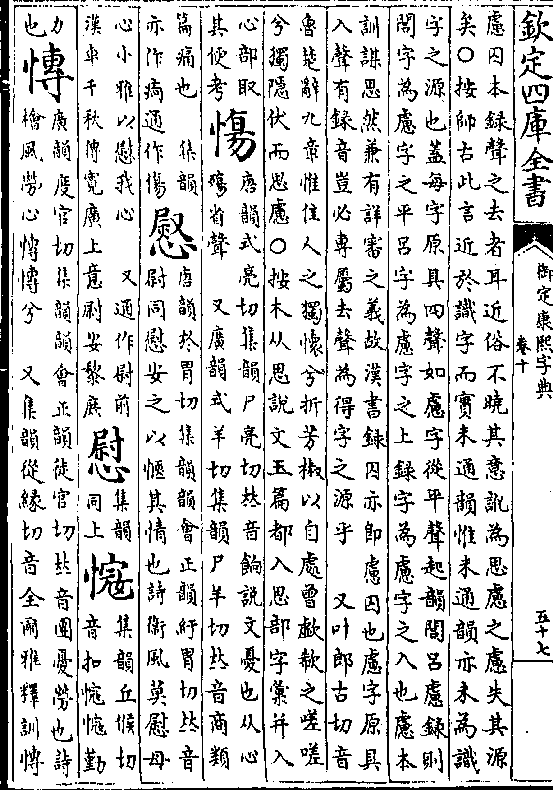 欽定四庫全書
御定康熙字典
卷十
五十七
慮囚本録聲之去者耳近俗不曉其意訛為思慮之慮失其源
矣○按師古此言近於識字而實未通韻惟未通韻亦未為識
字之源也蓋每字原具四聲如慮字從平聲起韻閭呂慮録則
閭字為慮字之平呂字為慮字之上録字為慮字之入也慮本
訓謀思然兼有詳審之義故漢書録囚亦即慮囚也慮字原具
入聲有録音豈必專屬去聲為得字之源乎　又叶郎古切音
魯楚辭九章惟佳人之獨懷兮折芳椒以自處曾歔欷之嗟嗟
兮獨隱伏而思慮○按本从思說文玉篇都入思部字彙并入
心部取
其便考
慯
唐韻式亮切集韻尸亮切𠀤音餉說文憂也从心
殤省聲　又廣韻式羊切集韻尸羊切𠀤音商類
篇痛也　集韻
亦作㾕通作傷
慰
唐韻於胃切集韻韻會正韻紆胃切𠀤音
尉同慰安之以愜其情也詩衛風莫慰母
心小雅以慰我心　又通作尉前
漢車千秋傳寛廣上意尉安黎庶
慰
集韻
同上
㥲
集韻丘候切
音扣㥲㥲勤
力
也
慱
廣韻度官切集韻韻會正韻徒官切𠀤音團憂勞也詩
檜風勞心慱慱兮　又集韻從緣切音全爾雅釋訓慱